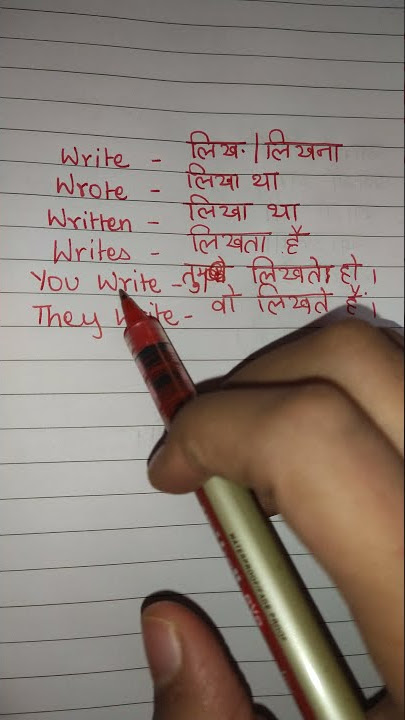 Write - लिख / लिखना
Wrote - लिखा था
Written - लिखा था
Writes - लिखता है
You Write - तुम लिखते हो।
They Write - वो लिखते हैं।